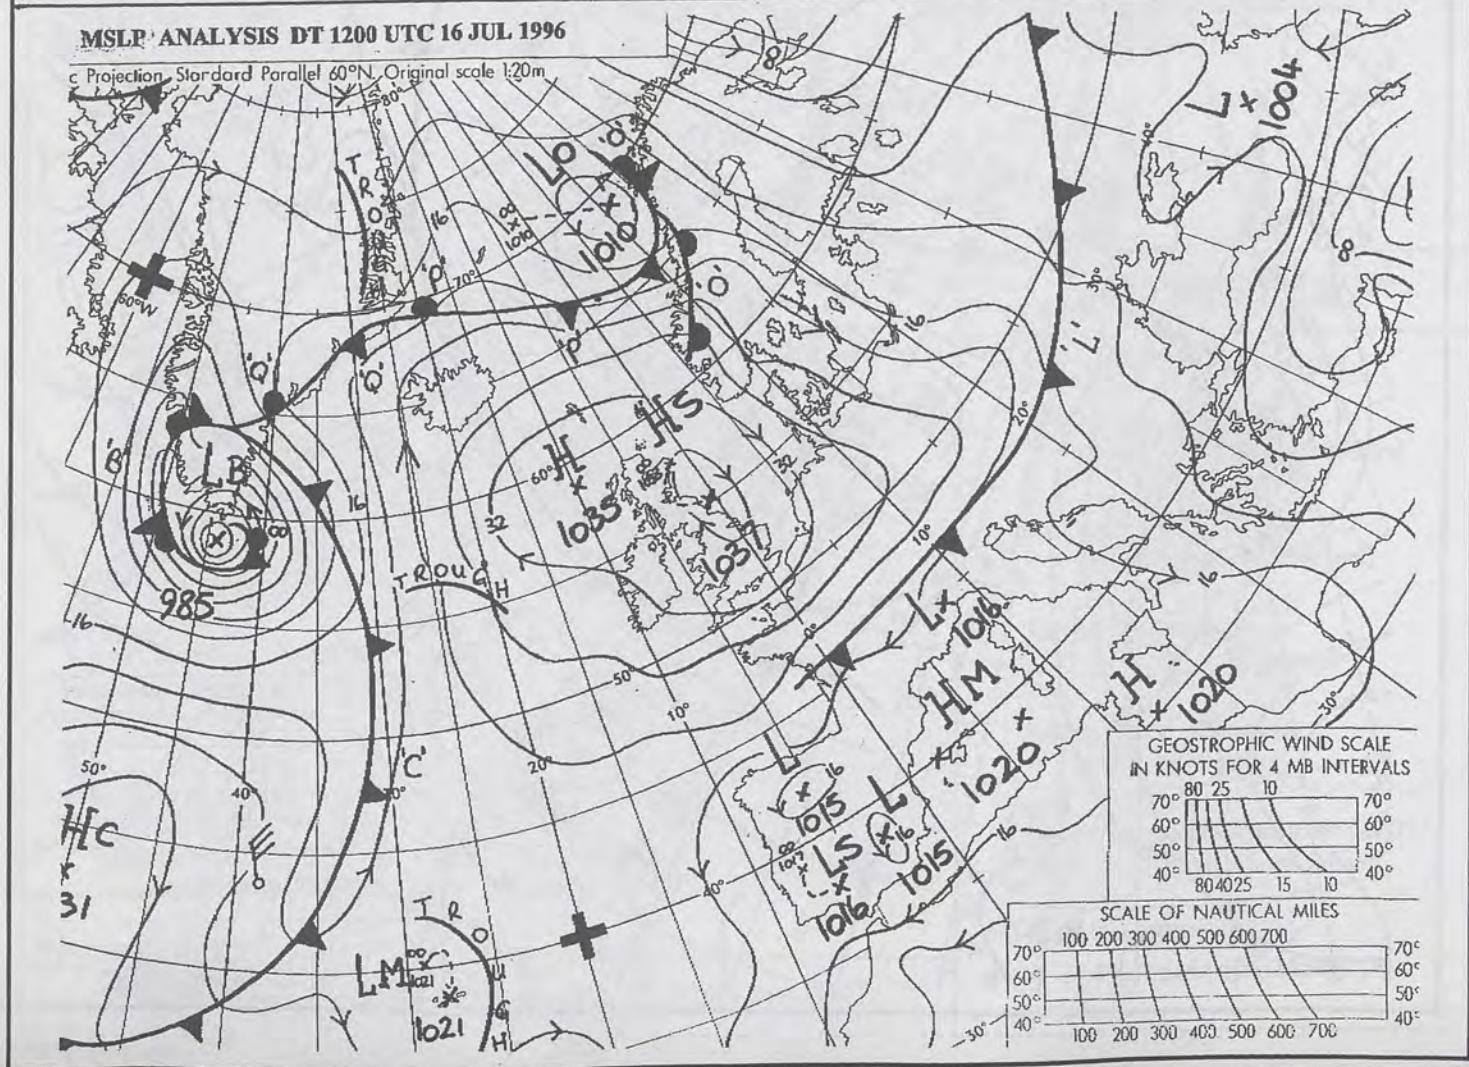 MSLP ANALYSIS DT 1200 UTC 16 JUL 1996
c Projection Standard Parallel 60°N. Original scale 1:20m
80°
8
L
1004
TROUGH
LO
'O'
16
00
1010
1010
'P'
70°
'O'
60°W
'P'
'Q'
'Q'
16
8
30°
'L'
20°
'B'
LB
8
16
985
16
HS
H
60°
32
1035
1037
32
TROUGH
10°
0°
50°
10°
20°
L
1016
HM
1020
H
1020
16
30°
50°
40°
'C'
30°
HC
31
L
16
1015
L
16
1015
00
1017
LS
1016
40°
16
TROUGH
LM
00
1021
1021
30°
GEOSTROPHIC WIND SCALE
IN KNOTS FOR 4 MB INTERVALS
80 25 10
70° 70°
60° 60°
50° 50°
40° 40°
80 40 25 15 10
SCALE OF NAUTICAL MILES
100 200 300 400 500 600 700
70° 70°
60° 60°
50° 50°
40° 40°
100 200 300 400 500 600 700